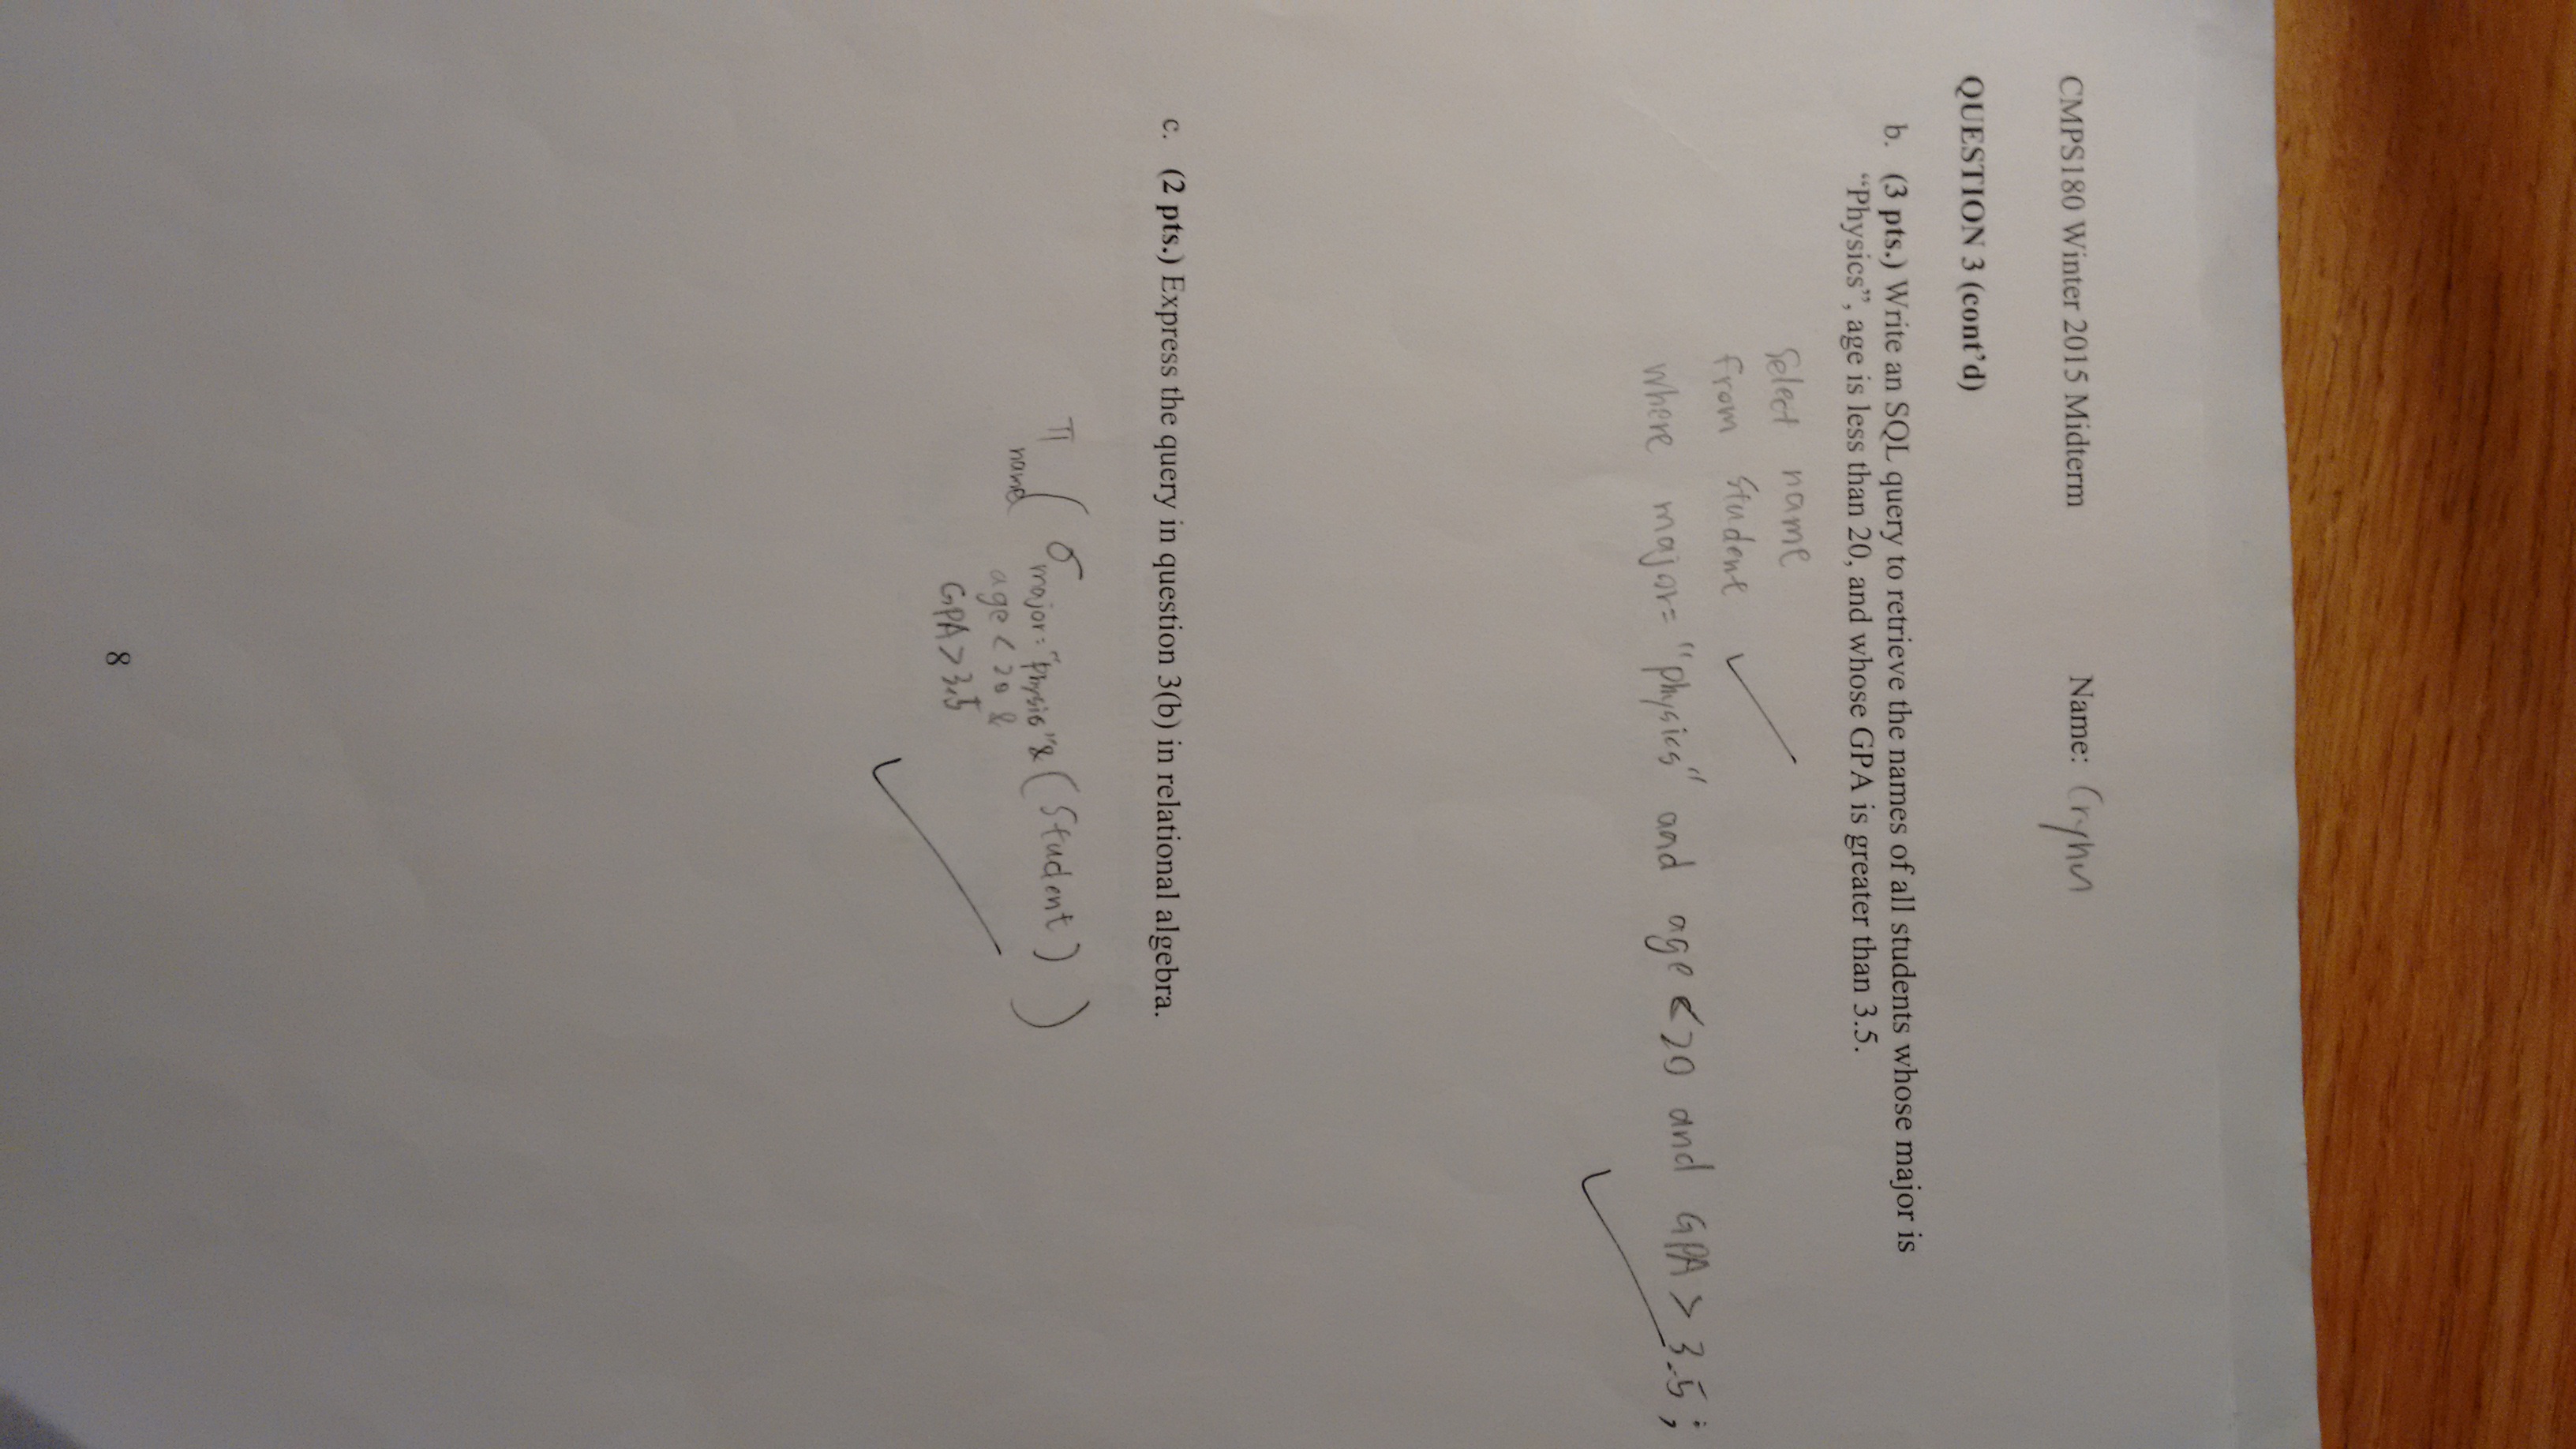 CMPS180 Winter 2015 Midterm Name:
QUESTION 3 (cont’d)
b. (3 pts.) Write an SQL query to retrieve the names of all students whose major is
“Physics”, age is less than 20, and whose GPA is greater than 3.5.
Select name
from Student
where major= "physics" and age <20 and GPA > 3.5;
c. (2 pts.) Express the query in question 3(b) in relational algebra.
π name ( σ major="Physic"& (Student) )
age < 20 &
GPA > 3.5
8